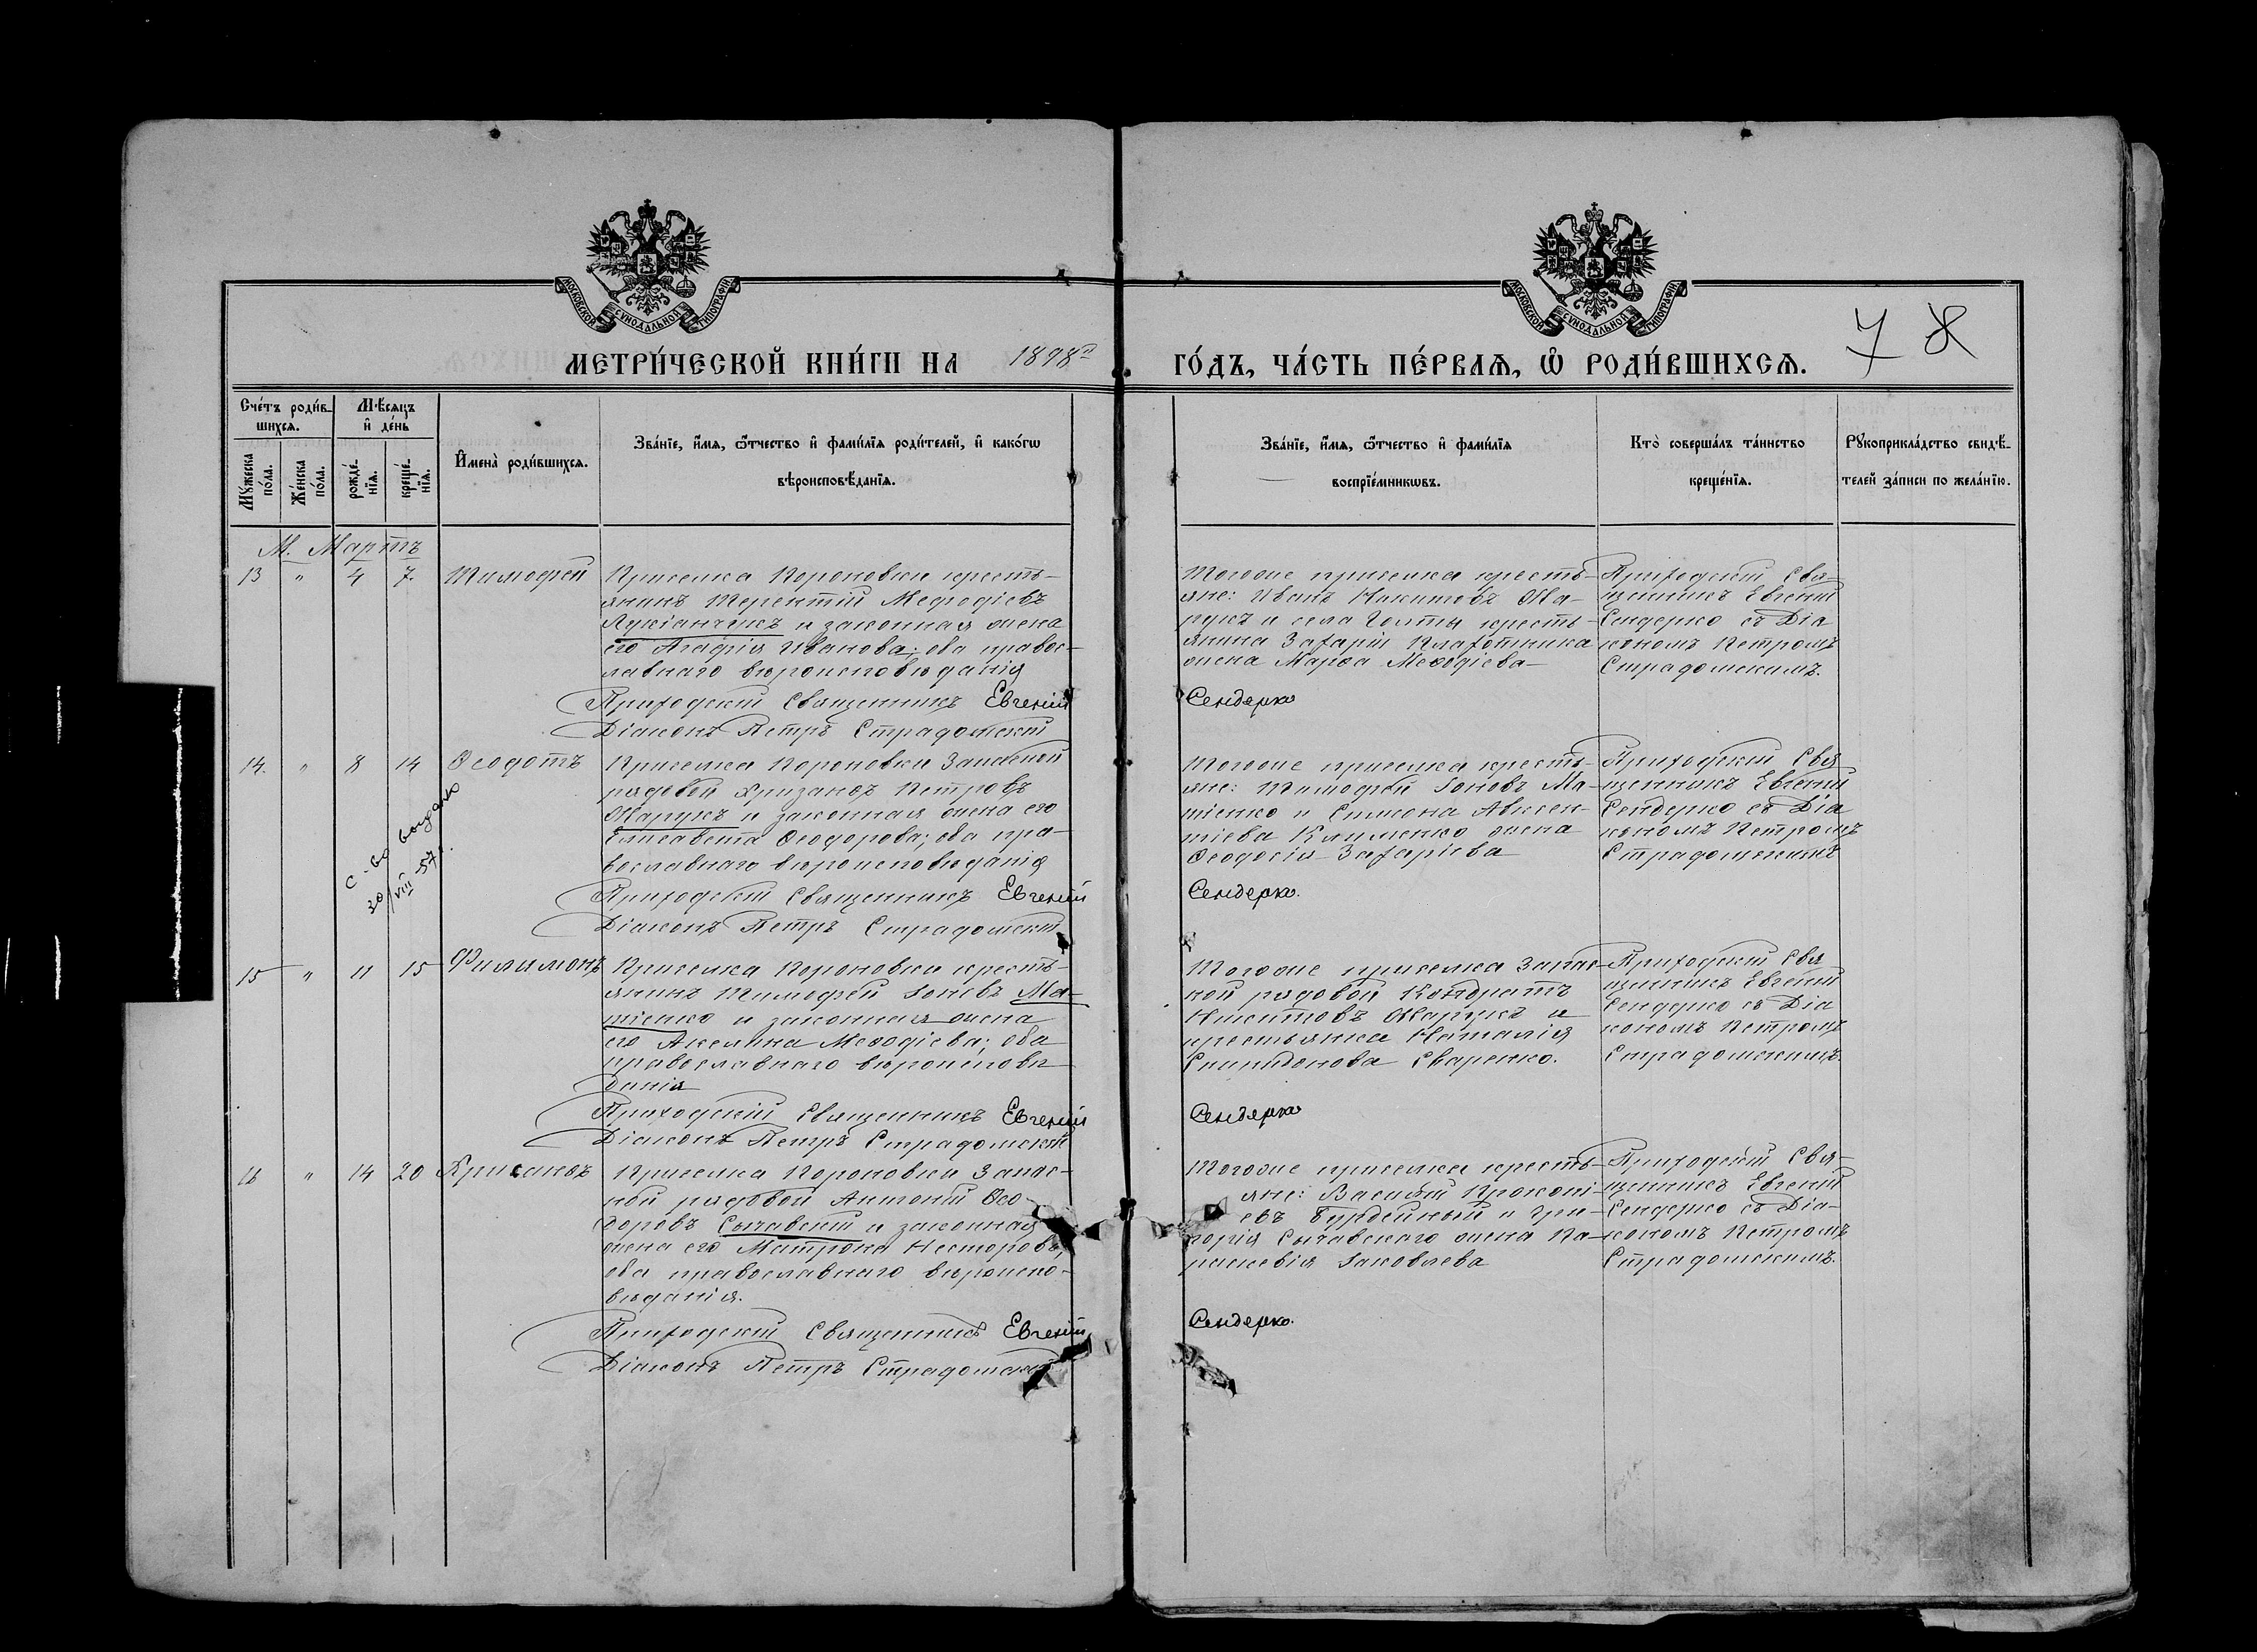 МОСКОВСКОЙ СѴНОДАЛЬНОЙ ТИПОГРАФІИ
МОСКОВСКОЙ СѴНОДАЛЬНОЙ ТИПОГРАФІИ
МЕТРИ́ЧЕСКОЙ КНИ́ГИ НА 1898й ГО́ДЪ, ЧА́СТЬ ПЕ́РВАѦ, Ѽ РОДИ́ВШИХСѦ.
7 8
Сче́тъ роди́в-
шихсѧ.
Мѣ́сѧцъ
и҆ де́нь
Мꙋ́жеска
по́ла.
Же́нска
по́ла.
рожде́-
нїѧ.
креще́-
нїѧ.
И҆мена̀ роди́вшихсѧ.
Зва́нїе, и҆́мѧ, ѻ҆́тчество и҆ фами́лїѧ роди́телей, и҆ како́гѡ
вѣроисповѣ́данїѧ.
Зва́нїе, и҆́мѧ, ѻ҆́тчество и҆ фами́лїѧ
воспрїе́мникѡвъ.
Кто̀ соверша́лъ та́инство
креще́нїѧ.
Рꙋкоприкла́дство свидѣ́-
телей за́писи по жела́нїю.
М. Мартъ
13 " 4 7. Тимофей
Приселка Короновки кресть-
янинъ Терентій Меѳодіевъ
Лукіанчукъ и законная жена
его Агафія Иванова; оба правос-
лавнаго вѣроисповѣданія
Приходскій Священникъ Евгеній
Діаконъ Петръ Страдомскій
Тогоже приселка кресть-
яне: Иванъ Никитовъ Жа-
рукъ и села Голты кресть-
янина Захарія Плахотника
жена Марѳа Меѳодіева
Сендерко
Приходскій Свя-
щенникъ Евгеній
Сендерко съ Діа
кономъ Петромъ
Страдомскимъ.
14. " 8 14 Ѳеодотъ
с-во выдано
20/VIII-57 г.
Приселка Короновки Запасной
рядовой Хрисанѳъ Петровъ
Жарукъ и законная жена его
Елисавета Ѳеодорова; оба пра-
вославнаго вѣроисповѣданія
Приходскій Священникъ Евгеній
Діаконъ Петръ Страдомскій
Тогоже приселка кресть-
яне: Тимофей Іоновъ Ма-
тіенко и Симеона Авксен-
тіева Клименко жена
Ѳеодосія Захаріева
Сендерко.
Приходскій Свя
щенникъ Евгеній
Сендерко съ Діа
кономъ Петромъ
Страдомскимъ
15 " 11 15 Филимонъ
Приселка Короновки кресть-
янинъ Тимофей Іоновъ Ма-
тіенко и законная жена
его Акелина Меѳодіева; оба
православнаго вѣроисповѣ-
данія
Приходскій Священникъ Евгеній
Діаконъ Петръ Страдомскій
Тогоже приселка Запас-
ной рядовой Кондратъ
Никитовъ Жарукъ и
крестьянка Наталія
Спиридонова Сваренко.
Сендерко
Приходскій Свя
щенникъ Евгеній
Сендерко съ Діа
кономъ Петромъ
Страдомскимъ.
16 " 14 20 Хрисанѳъ
Приселка Короновки Запас-
ной рядовой Антоній Ѳео-
доровъ Сычавскій и законная
жена его Матрона Несторова,
оба православнаго вѣроиспо-
вѣданія.
Приходскій Священникъ Евгеній
Діаконъ Петръ Страдомскій
Тогоже приселка кресть-
яне: Василій Прокопі-
евъ Бурдейный и Гри-
горія Сычавскаго жена Па-
раскевія Іаковлева
Сендерко.
Приходскій Свя-
щенникъ Евгеній
Сендерко съ Діа-
кономъ Петромъ
Страдомскимъ.